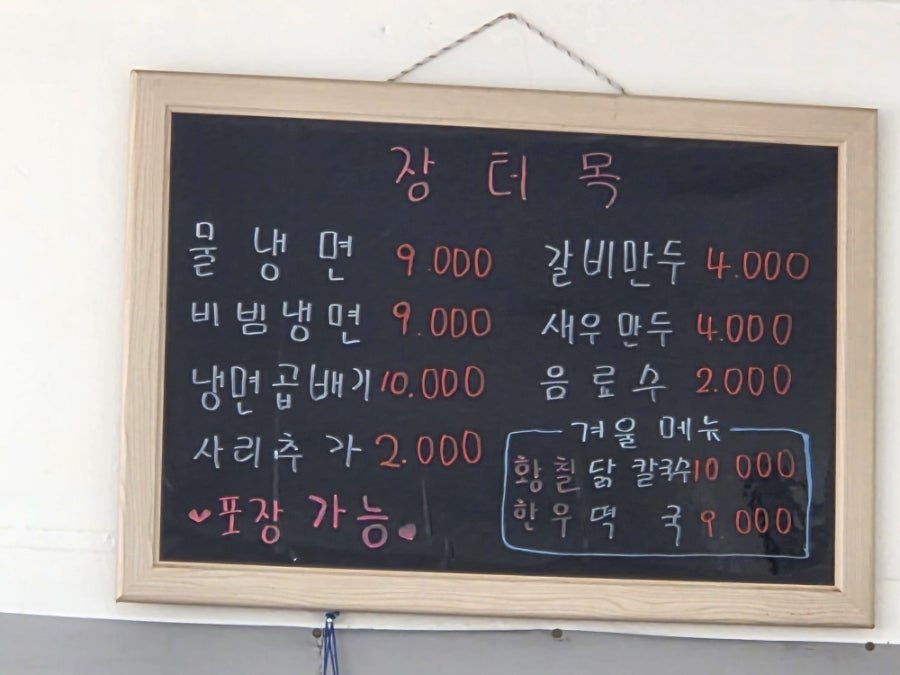 장터목
물냉면 9.000
비빔냉면 9.000
냉면곱배기 10.000
사리추가 2.000
♥포장가능♥
갈비만두 4.000
새우만두 4.000
음료수 2.000
겨울 메뉴
황칠닭칼국수 10 000
한우떡국 9 000